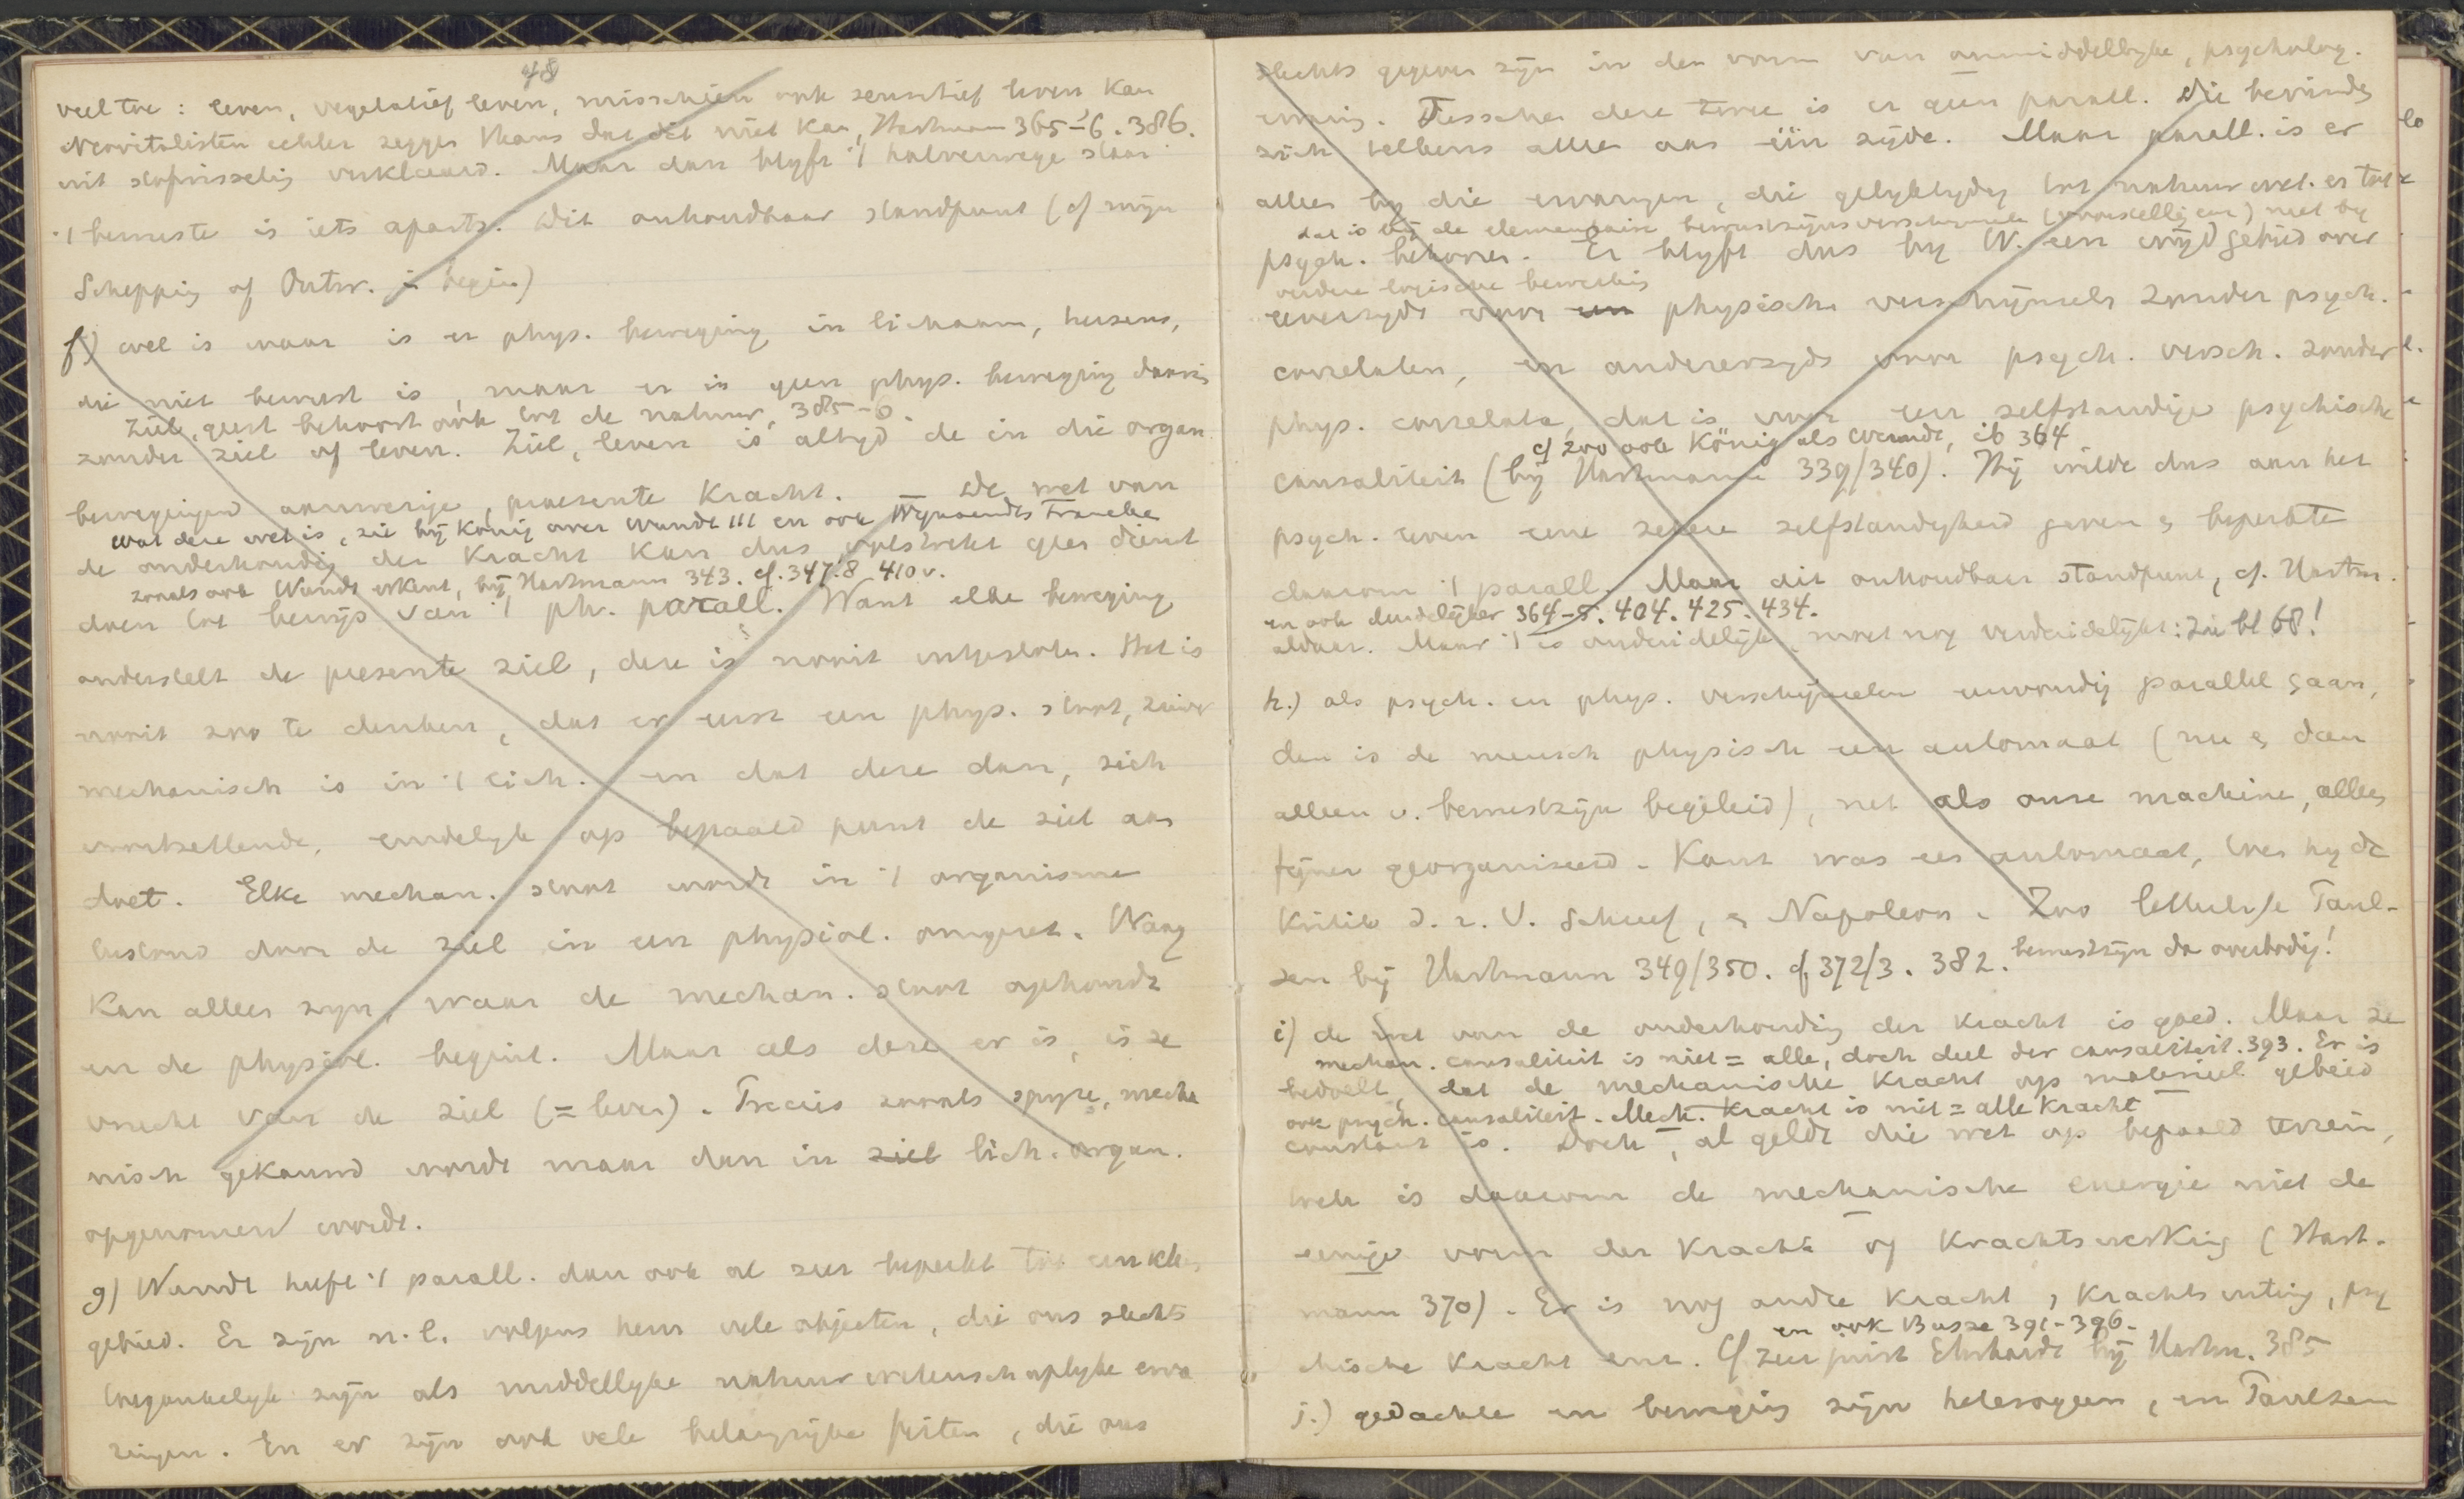 48
veel toe: leven, vegetatief leven, misschien ook sensitief leven kan
Neovitalisten echter zeggen thans dat dit niet kan, Hartmann 365-6. 386.
uit stofwisseling verklaard. Maar dan blyft 't halverwege staan
't bewuste is iets aparts. Dit onhoudbaar standpunt (cf myn
Schepping of Ontw. in begin)
f) wel is waar is er phys. beweging in lichaam, hersens,
die niet bewust is, maar er is geen phys. beweging daarin
Ziel, geest behoort ook tot de natuur, 385-6.
zonder ziel of leven. Ziel, leven is altyd de in die organ
bewegingen aanwezige, praesente kracht. De wet van
wat deze wet is, zie bij König over Wundt 111 en ook Wynaendts Francken
de onderhouding der kracht kan dus volstrekt geen dienst
zooals ook Wundt erkent, bij Hartmann 343. cf. 347.8 410 v.
doen tot bewijs van 't ph. parall. Want elke beweging
onderstelt de presente ziel, deze is nooit uitgesloten. Het is
nooit zoo te denken, dat er eerst een phys. stoot, zuiver
mechanisch is in 't lich. en dat deze dan, zich
voortzettende, eindelyk op bepaald punt de ziel aan
doet. Elke mechan. stoot wordt in 't organisme
door de ziel in een physiol. omgezet. Vraag
kan alleen zyn, waar de mechan. stoot ophoudt
en de physiol. begint. Maar als deze er is, is ze
vrucht van de ziel (= leven). Precies zooals spyze, mecha
nisch gekauwd wordt maar dan in ziel lich. organ.
opgenomen wordt.
g) Wundt heeft 't parall. dan ook al zeer beperkt tot een klein
gebied. Er zyn n.l. volgens hem vele objecten, die ons slechts
toegankelyk zyn als middellyke natuurwetenschaplyke erva
ringen. En er zyn ook vele belangrijke feiten, die ons
slechts gegeven zyn in den vorm van onmiddellyke, psycholog.
ervaring. Tusschen deze twee is er geen parall. Die bevinden
zich telkens alleen aan één zyde. Maar parall. is er
alleen by die ervaringen, die gelyktydig tot natuurwet. en tot
dat is bij de elementaire bewustzijnsverschijnselen (voorstellingen) niet by
psych. behooren. Er blyft dus by W. een wyd gebied over
verdere logische bewerking
eenerzyds voor een physische verschijnsels zonder psych.
correlaten, en andererzyds voor psych. versch. zonder
phys. correlata, dat is voor een zelfstandige psychische
cf zoo ook König als Wundt, ib 364
causaliteit (bij Hartmann 339/340). Hij wilde dus aan het
psych. leven eene zekere zelfstandigheid geven & beperkte
daarom 't parall. Maar dit onhoudbaar standpunt, cf. Hartm.
en ook duidelijker 364-5. 404. 425. 434.
aldaar. Maar 't is onduidelijk, moet nog verduidelijkt: Zie bl 68!
h.) als psych. en phys. verschijnselen eenvoudig parallel gaan,
dan is de mensch physisch een automaat (nu & dan
alleen v. bewustzijn begeleid), net als onze machine, alleen
fijner georganiseerd. Kant was een automaat, toen hy de
Kritik d. r. V. schreef, & Napoleon. Zoo letterlijk Paul-
sen bij Hartmann 349/350. cf 372/3. 382. bewustzijn dan overbodig!
i) de wet van de onderhouding der kracht is goed. Maar ze
mechan. causaliteit is niet = alle, doch deel der causaliteit. 393. Er is
bedoelt, dat de mechanische kracht op materieel gebied
ook psych. causaliteit. Mech. kracht is niet = alle kracht
constant is. Doch, al geldt die wet op bepaald terrein,
toch is daarom de mechanische energie niet de
eenige vorm der kracht of krachtswerking (Hart-
mann 370). Er is nog andre kracht, krachtsuiting, psy
en ook Busse 391-396.
chische kracht enz. Cf zeer juist Ehrhardt bij Hartm. 385
j.) gedachte en beweging zijn heterogeen, en Paulsen